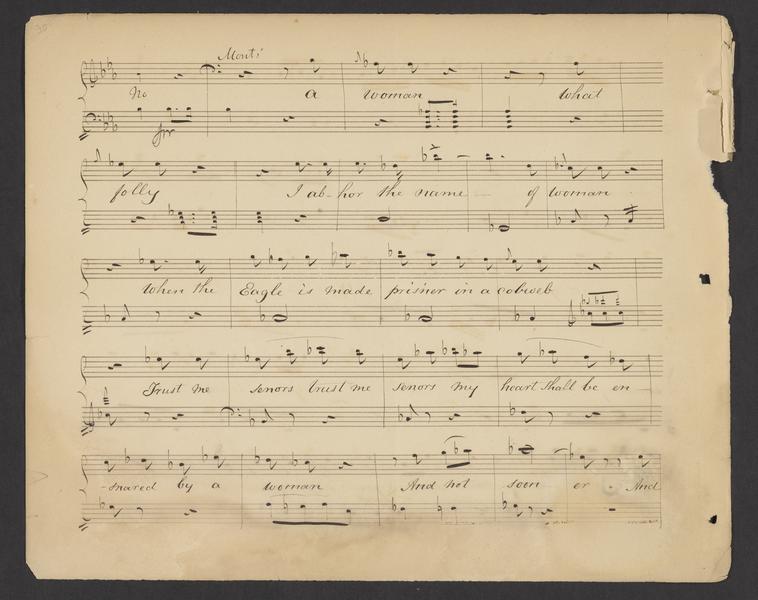 30
Mont:
No a woman what
folly I ab-hor the name of woman
When the Eagle is made prisner in a cobweb
Trust me senors trust me senors my heart shall be en-
-snared by a woman And not soon er. And